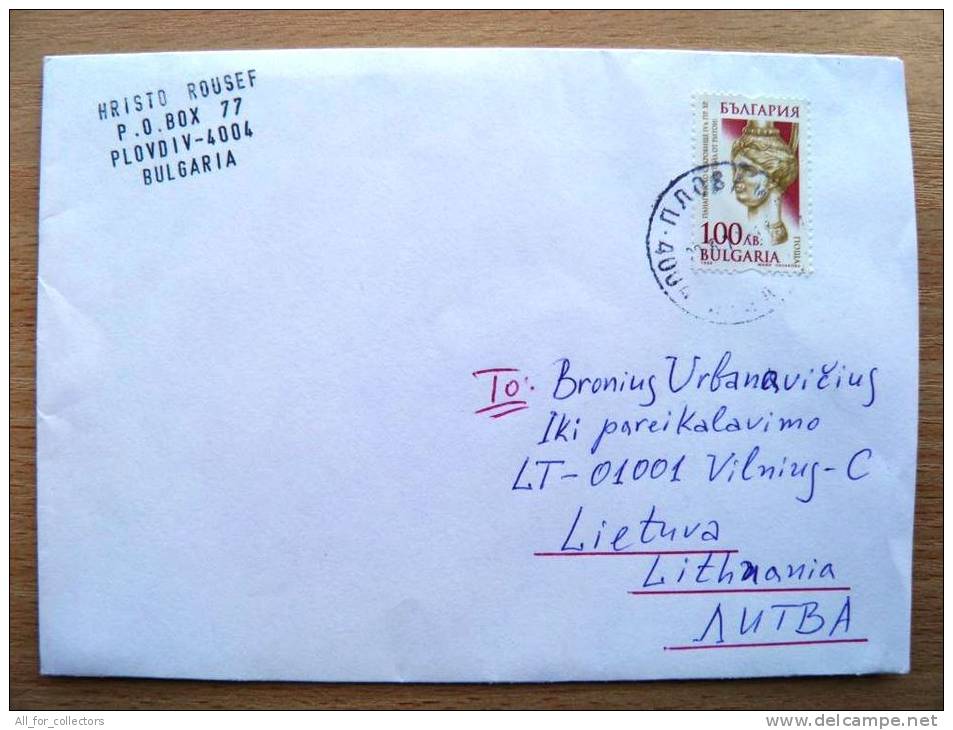 HRISTO ROUSEF
P.O.BOX 77
PLOVDIV-4004
BULGARIA
БЪЛГАРИЯ
100 ЛВ.
BULGARIA
ПОЩА
ПЛОВ
To: Bronius Urbanavičius
Iki pareikalavimo
LT-01001 Vilnius-C
Lietuva
Lithuania
ЛИТВА
All_for_collectors
www.delcampe.net